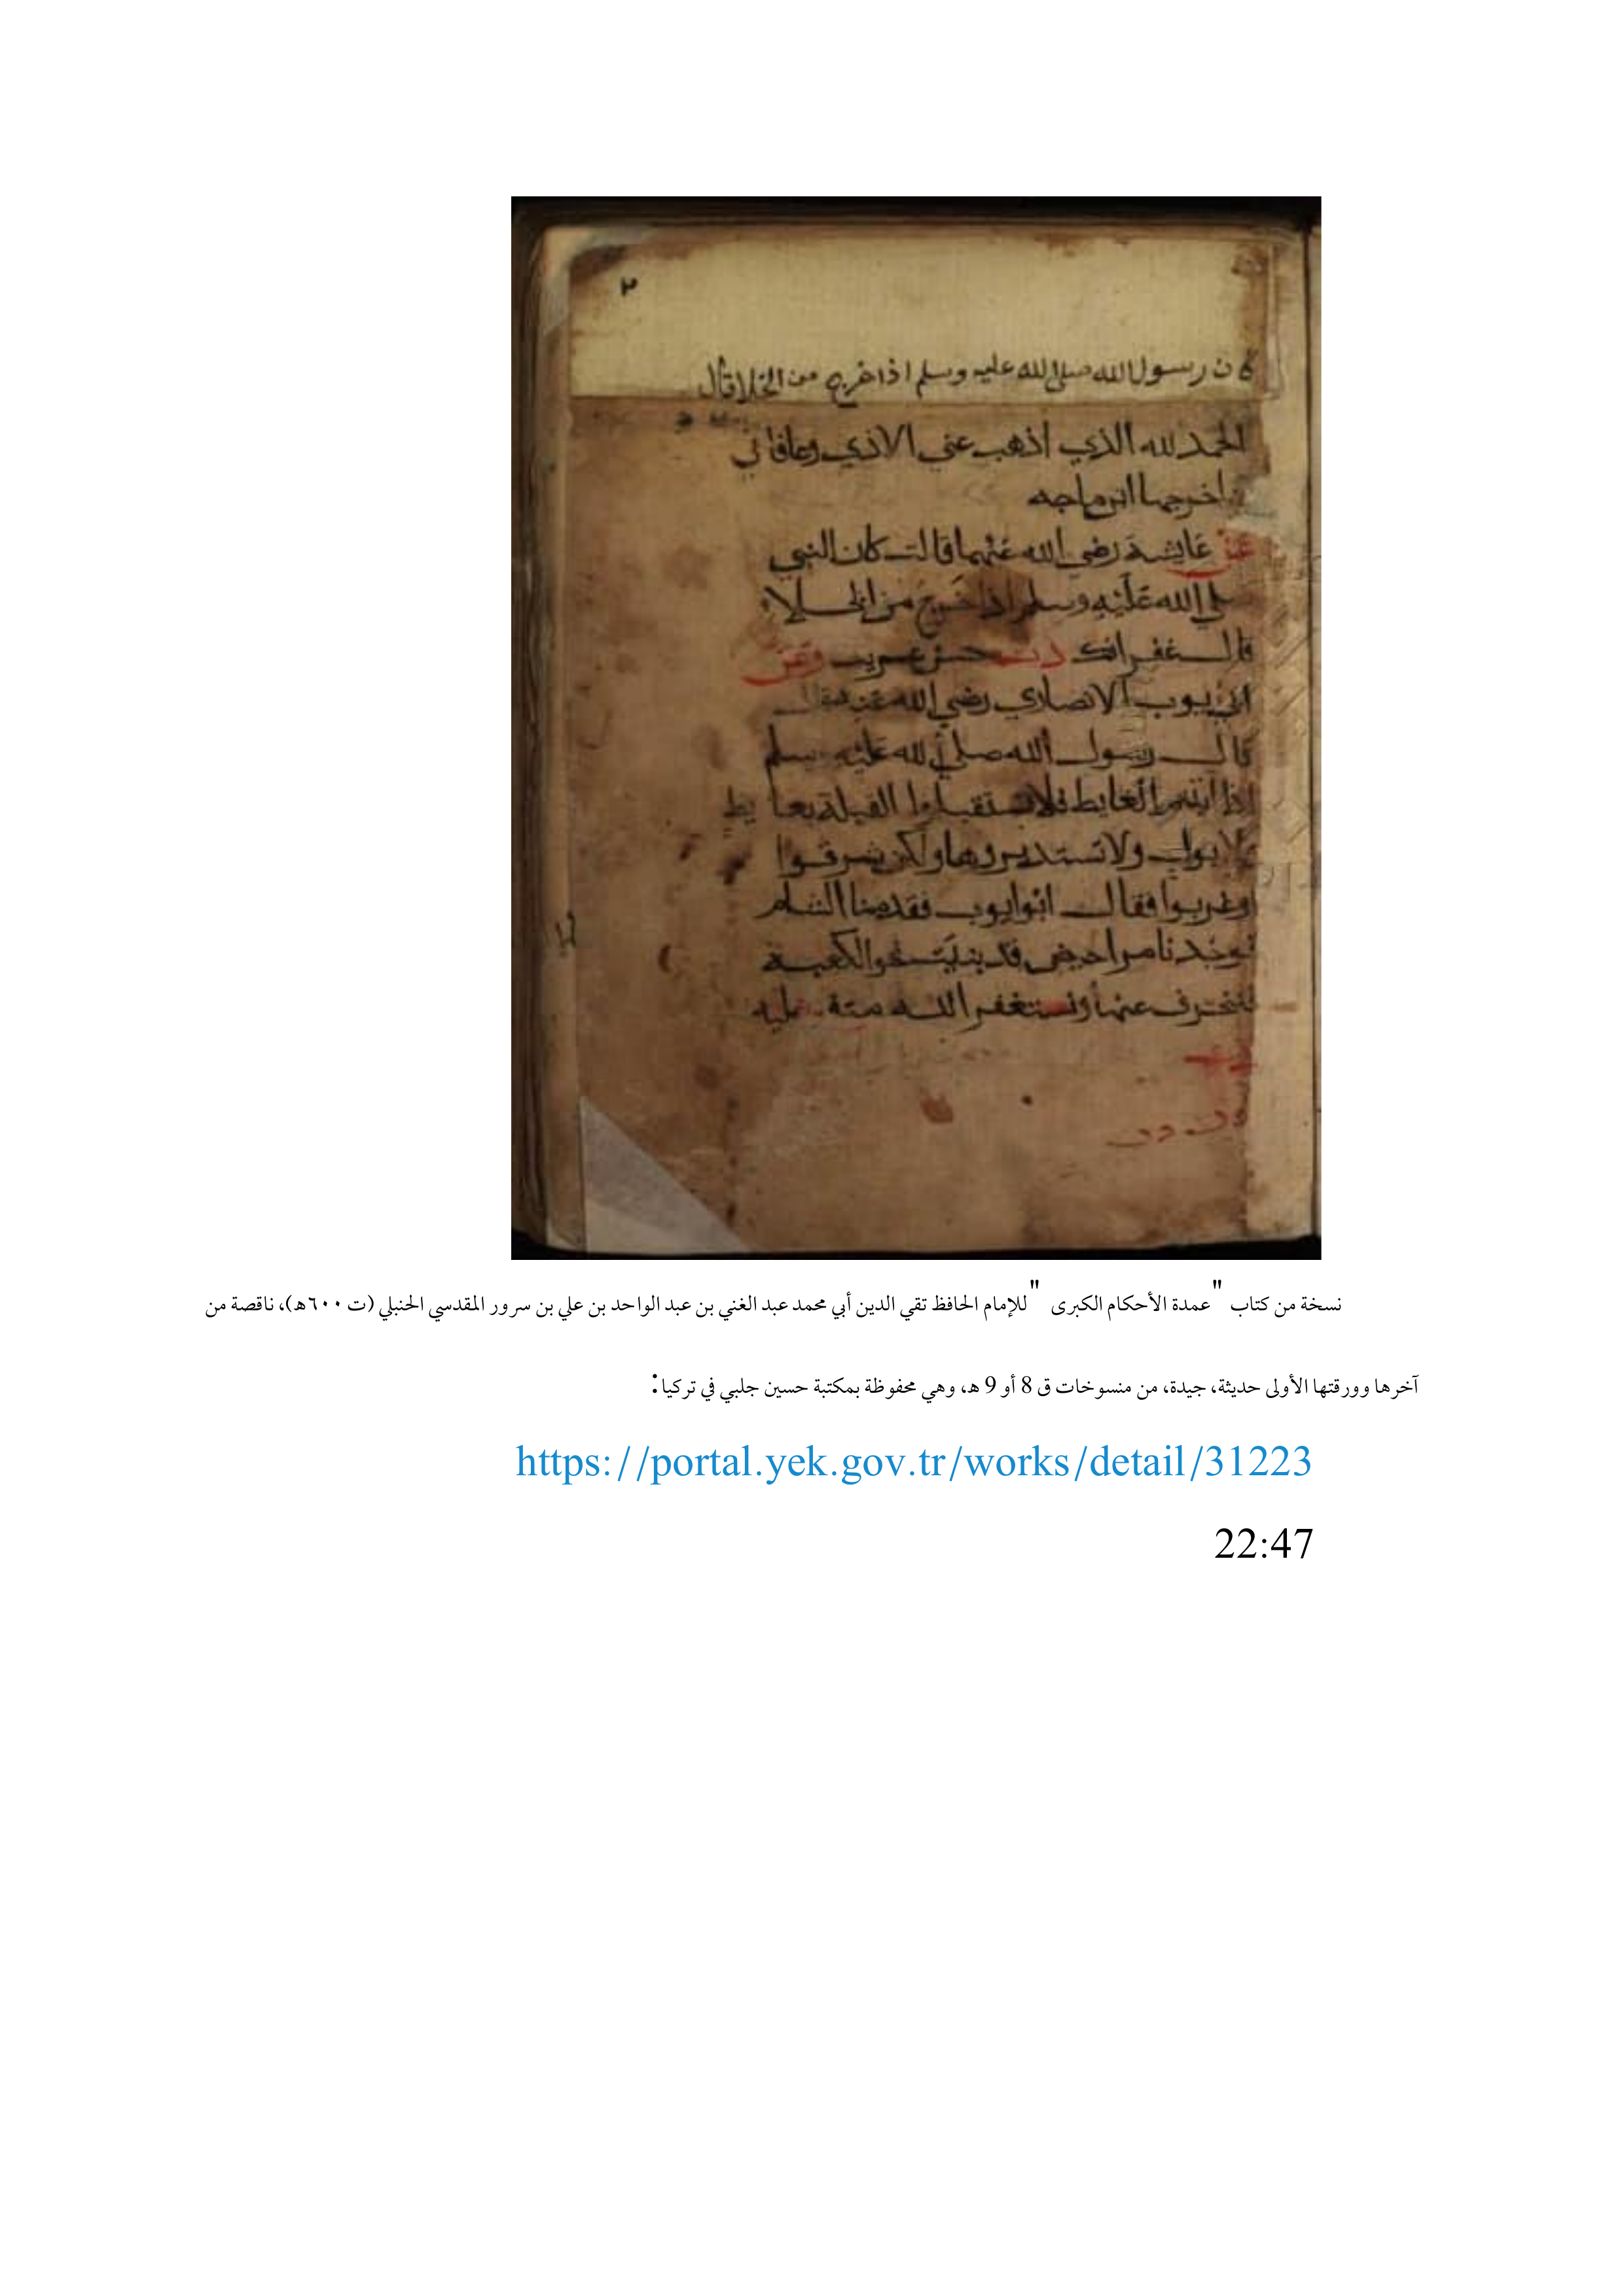 ٢
كان رسول الله صلى الله عليه وسلم اذا خرج من الخلا قال
الحمد لله الذي اذهب عني الاذي وعافاني
اخرجهما ابن ماجه
عن عايشة رضي الله عنها قالت كان النبي
الله عليه وسلم اذا خرج من الخلاء
قال غفرانك دت حسن غريب وعن
ايوب الانصاري رضي الله عنه قال
قال رسول الله صلى الله عليه وسلم
اذا اتيتم الغايط فلا تستقبلوا القبلة بغايط
ولا تستدبروها ولكن شرقوا
وغربوا فقال ابو ايوب فقدمنا الشام
فوجدنا مراحيض قد بنيت نحو الكعبة
فننحرف عنها ونستغفر الله عليه
نسخة من كتاب "عمدة الأحكام الكبرى" للإمام الحافظ تقي الدين أبي محمد عبد الغني بن عبد الواحد بن علي بن سرور المقدسي الحنبلي (ت ٦٠٠هـ)، ناقصة من
آخرها وورقتها الأولى حديثة، جيدة، من منسوخات ق 8 أو 9 هـ، وهي محفوظة بمكتبة حسين جلبي في تركيا:
https://portal.yek.gov.tr/works/detail/31223
22:47